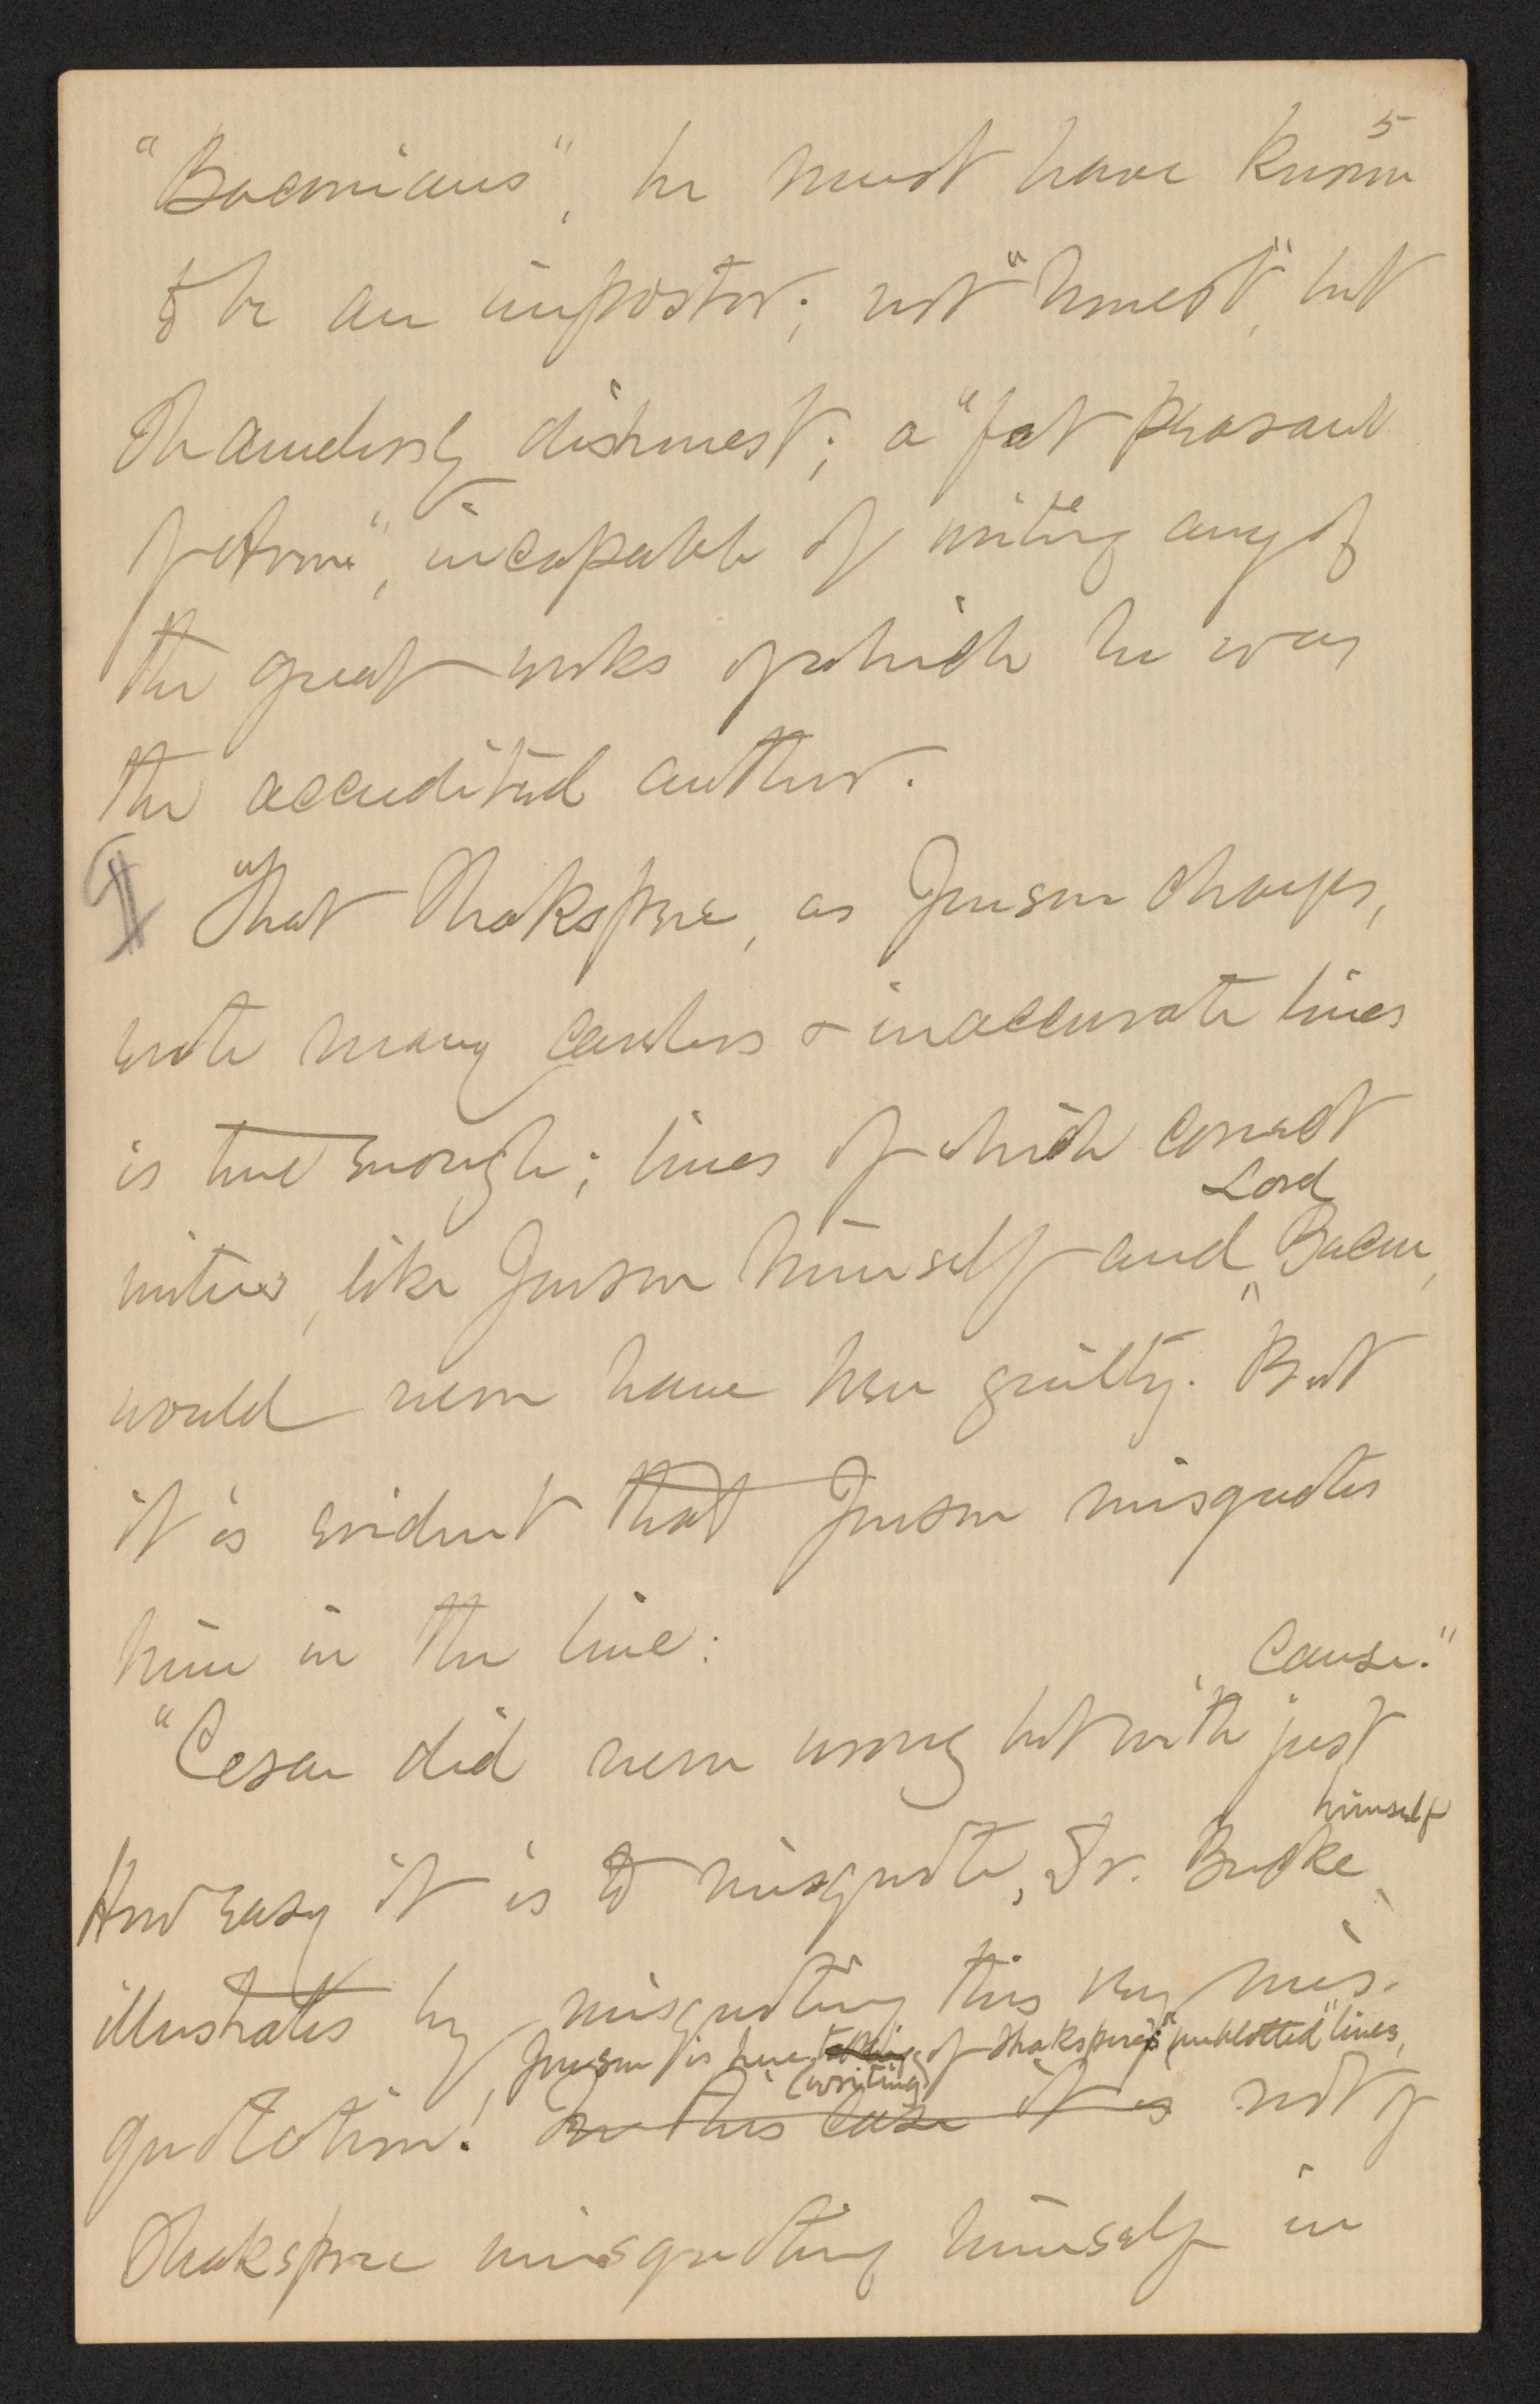 5
"Baconians", he must have known
to be an impostor; not "honest", but
shamelessly dishonest; a "fat peasant
of Avon", incapable of writing any of
the great works of which he was
the accredited author.
¶ "That Shakspere, as Jonson charges,
wrote many careless & inaccurate lines
is true enough; lines of which correct
Lord
writers, like Jonson himself and ^ Bacon,
would never have been guilty. But
it is evident that Jonson misquotes
him in the line:
cause."
"Cesar did never wrong but with just
himself
How easy it is to misquote, Dr. Bucke ^
illustrates by misquoting this very mis-
Jonson is here talking of Shakspere's "unblotted" lines,
(writing)
quotation! In this case it is not of
Shakspere misquoting himself in